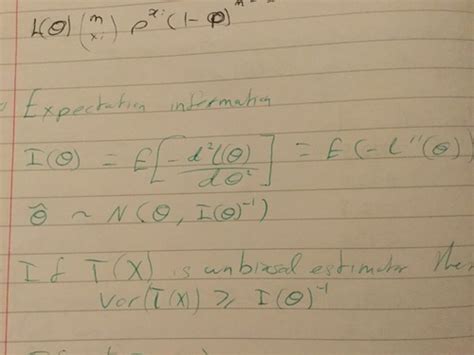 L(θ) (m xᵢ) p^xᵢ (1-p)^m-
Expectation information
I(θ) = E[-d²l(θ)/dθ²] = E(-l''(θ))
θ̂ ~ N(θ, I(θ)⁻¹)
If T(X) is unbiased estimator then
Var(T(X)) ⩾ I(θ)⁻¹